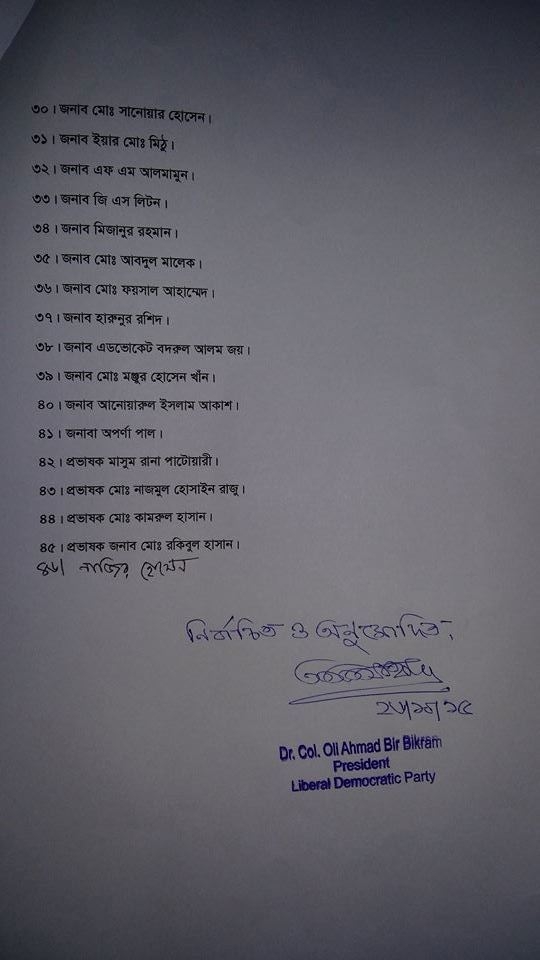 ৩০। জনাব মোঃ সানোয়ার হোসেন।
৩১। জনাব ইয়ার মোঃ মিঠু।
৩২। জনাব এফ এম আলমামুন।
৩৩। জনাব জি এস লিটন।
৩৪। জনাব মিজানুর রহমান।
৩৫। জনাব মোঃ আবদুল মালেক।
৩৬। জনাব মোঃ ফয়সাল আহাম্মেদ।
৩৭। জনাব হারুনুর রশিদ।
৩৮। জনাব এডভোকেট বদরুল আলম জয়।
৩৯। জনাব মোঃ মঞ্জুর হোসেন খাঁন।
৪০। জনাব আনোয়ারুল ইসলাম আকাশ।
৪১। জনাবা অপর্ণা পাল।
৪২। প্রভাষক মাসুম রানা পাটোয়ারী।
৪৩। প্রভাষক মোঃ নাজমুল হোসাইন রাজু।
৪৪। প্রভাষক মোঃ কামরুল হাসান।
৪৫। প্রভাষক জনাব মোঃ রকিবুল হাসান।
৪৬। নাজির হোসেন
নির্বাচিত ও অনুমোদিত,
Dr. Col. Oli Ahmad Bir Bikram
President
Liberal Democratic Party